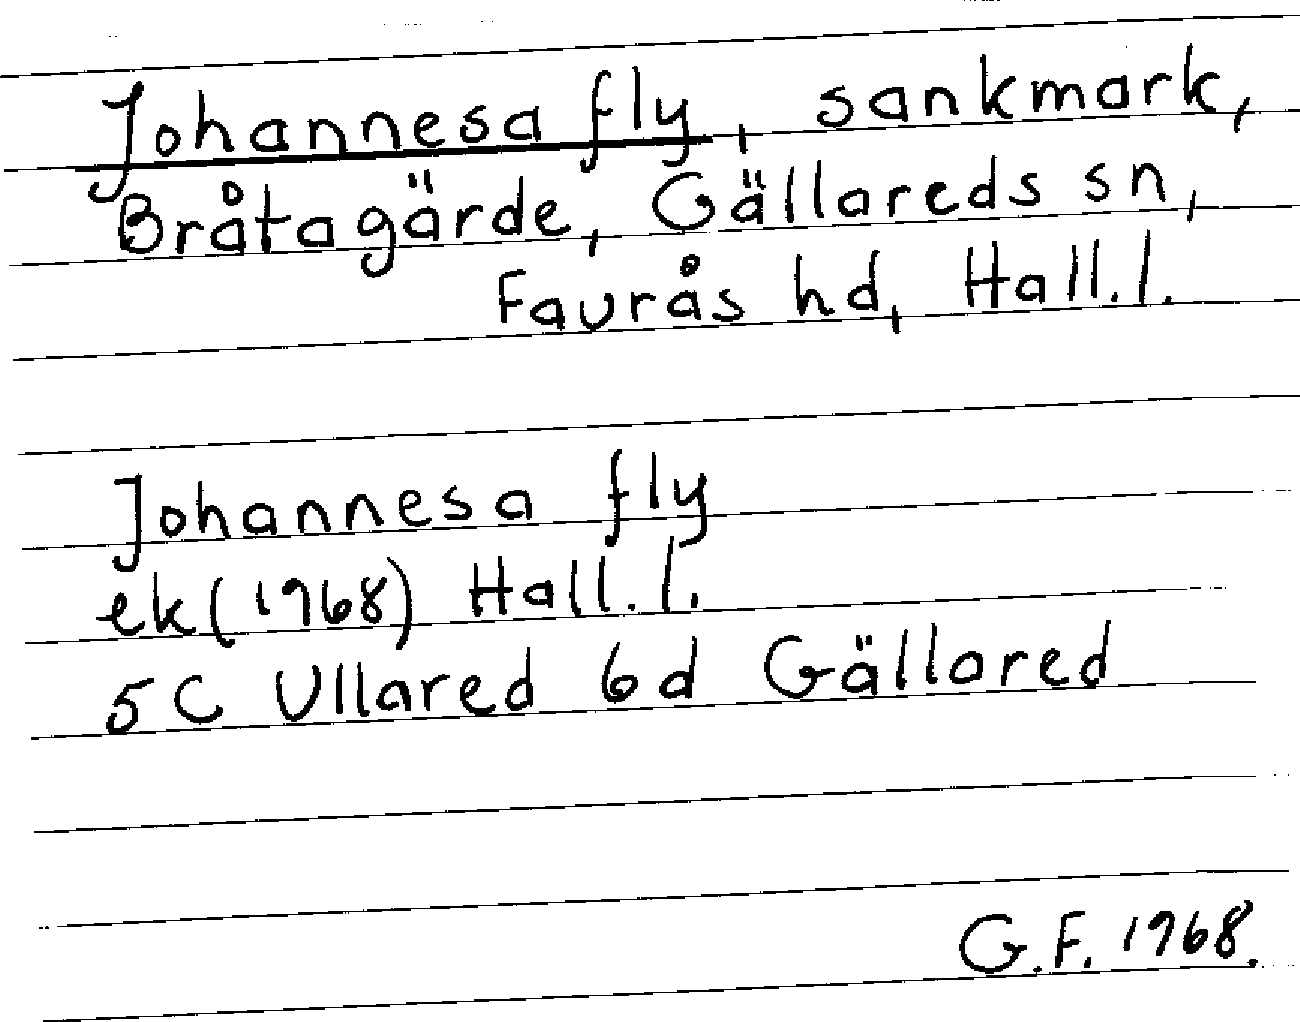 Johannesa fly, sankmark,
Bråtagärde, Gällareds sn,
Faurås hd, Hall.l.
Johannesa fly
ek (1968) Hall.l.
5C Ullared 6d Gällared
G.F. 1968.